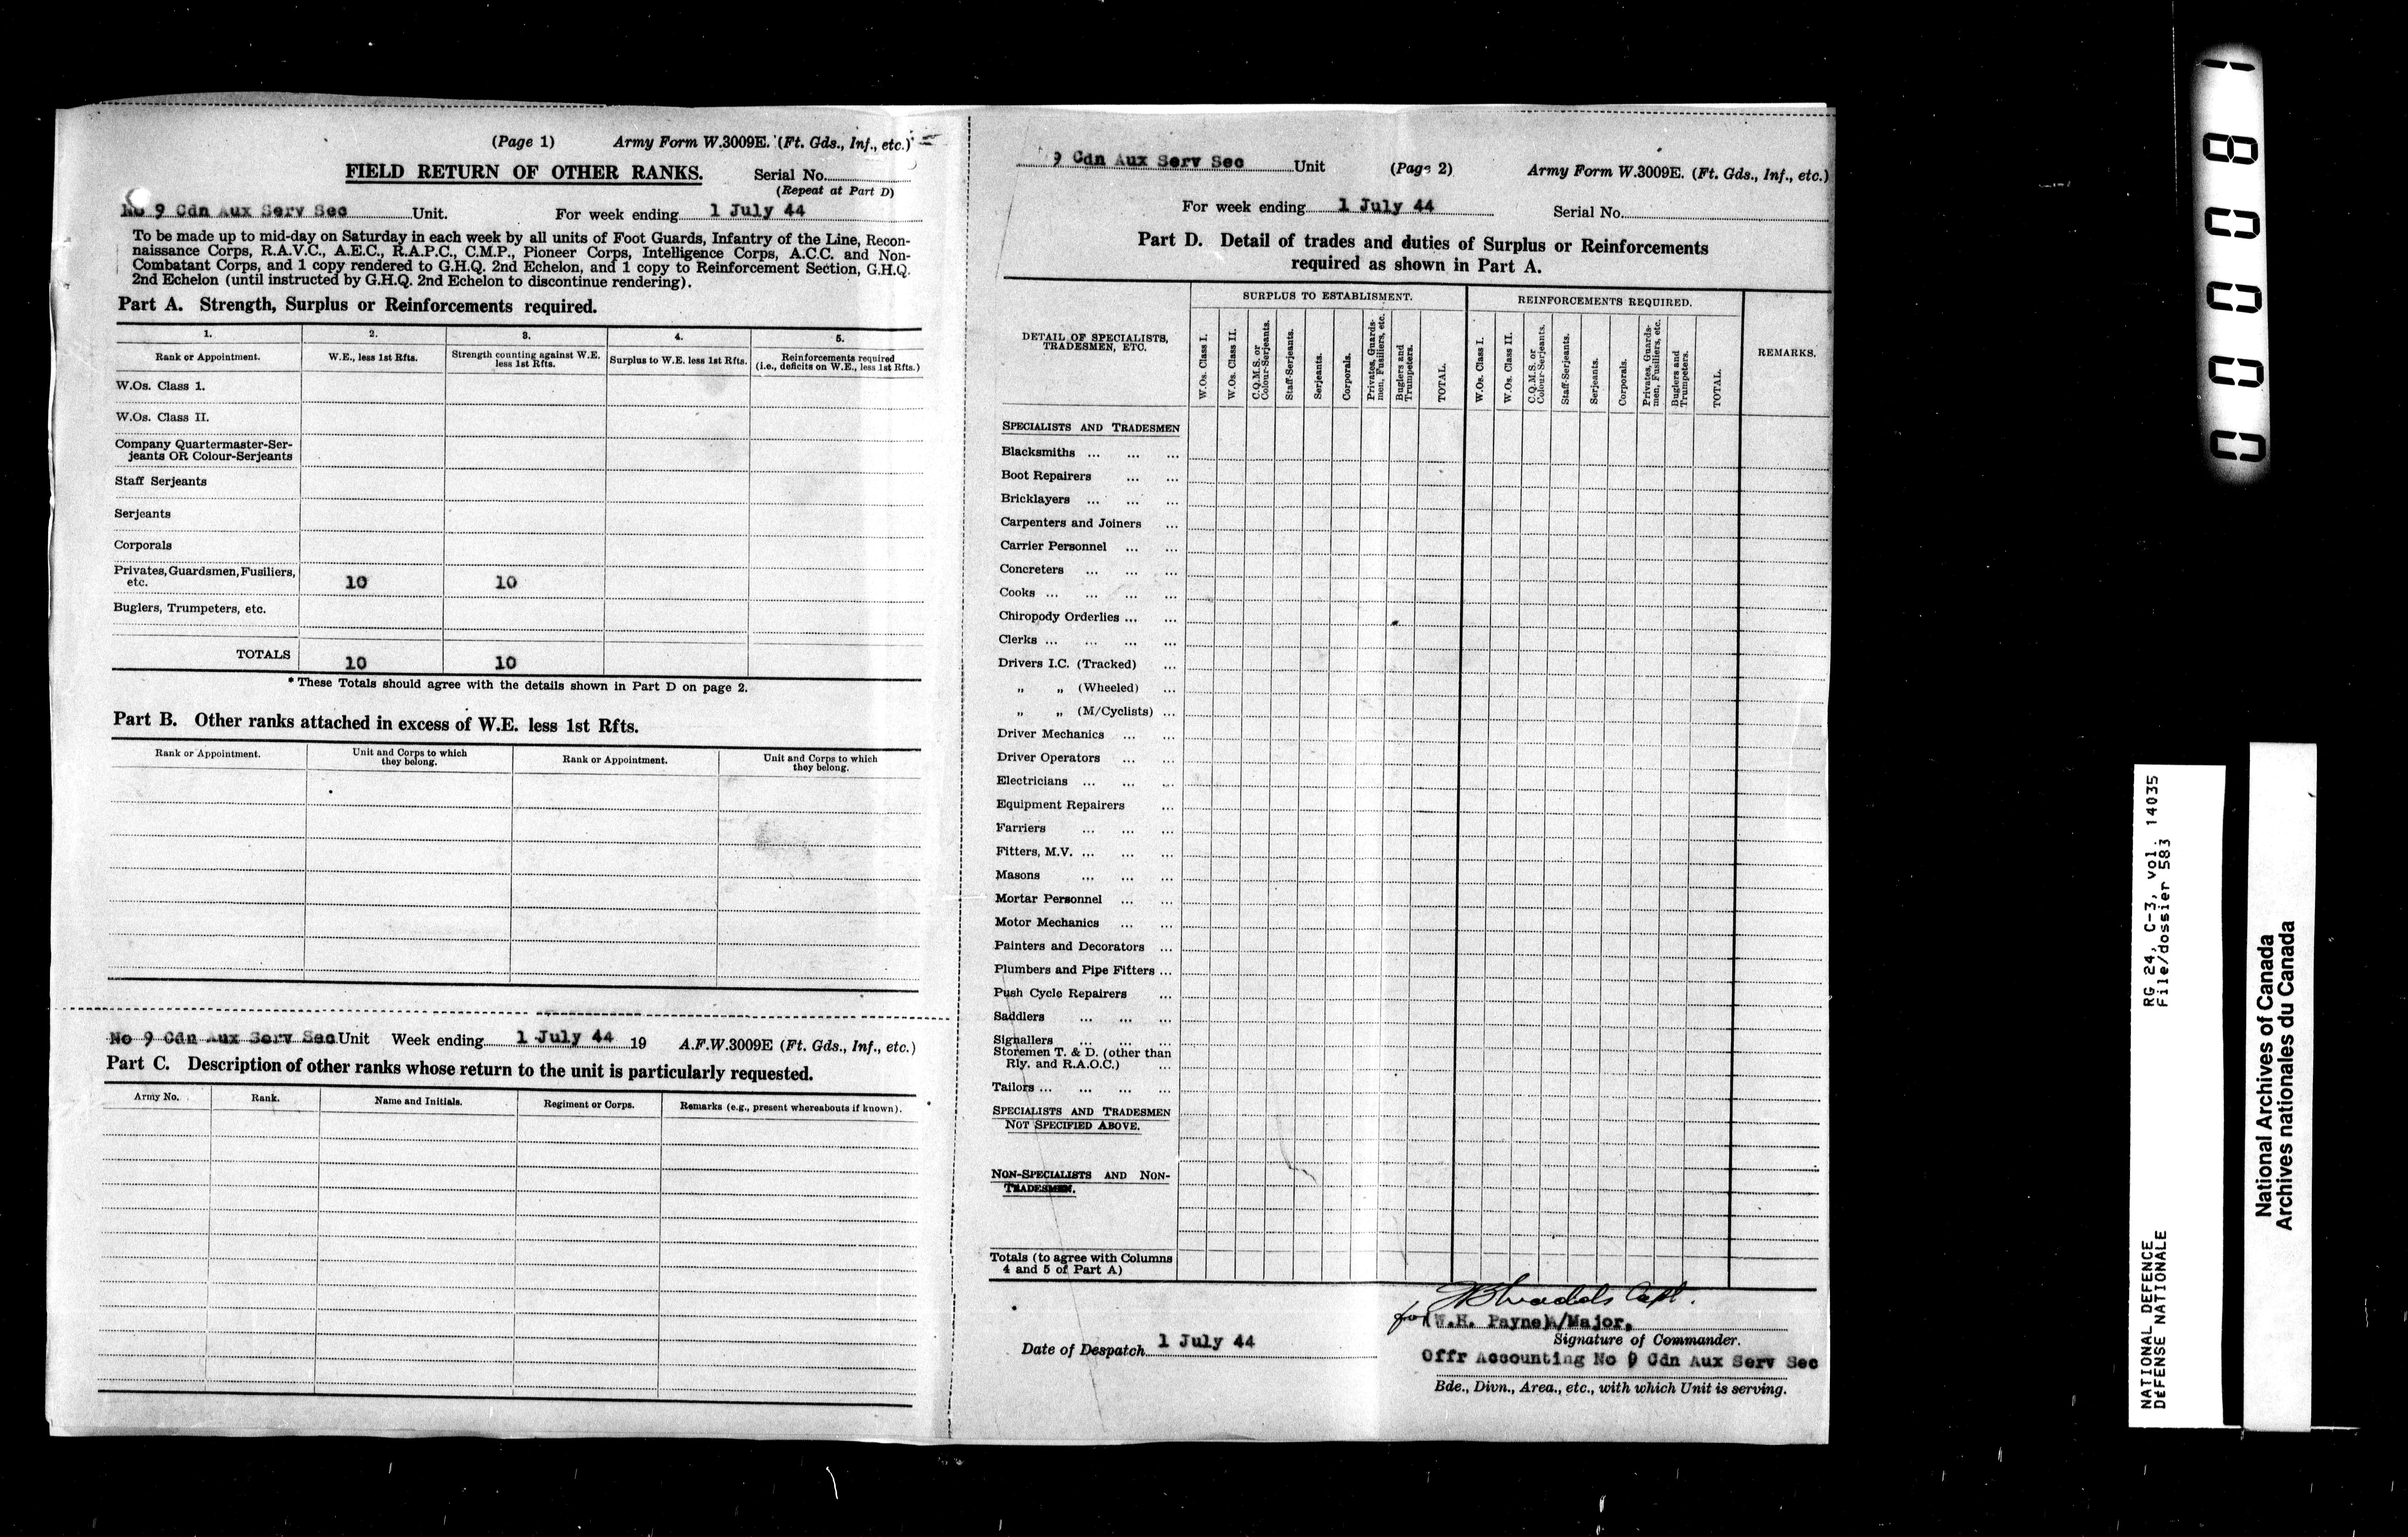 (Page 1) Army Form W.3009E. (Ft. Gds., Inf., etc.)
FIELD RETURN OF OTHER RANKS. Serial No.
(Repeat at Part D)
No 9 Cdn Aux Serv Sec Unit. For week ending 1 July 44
To be made up to mid-day on Saturday in each week by all units of Foot Guards, Infantry of the Line, Recon-
naissance Corps, R.A.V.C., A.E.C., R.A.P.C., C.M.P., Pioneer Corps, Intelligence Corps, A.C.C. and Non-
Combatant Corps, and 1 copy rendered to G.H.Q. 2nd Echelon, and 1 copy to Reinforcement Section, G.H.Q.
2nd Echelon (until instructed by G.H.Q. 2nd Echelon to discontinue rendering).
Part A. Strength, Surplus or Reinforcements required.
1. 2. 3. 4. 5.
Rank or Appointment. W.E., less 1st Rfts. Strength counting against W.E. less 1st Rfts. Surplus to W.E. less 1st Rfts. Reinforcements required (i.e., deficits on W.E., less 1st Rfts.)
W.Os. Class 1.
W.Os. Class II.
Company Quartermaster-Ser-
jeants OR Colour-Serjeants
Staff Serjeants
Serjeants
Corporals
Privates, Guardsmen, Fusiliers,
etc. 10 10
Buglers, Trumpeters, etc.
TOTALS 10 10
* These Totals should agree with the details shown in Part D on page 2.
Part B. Other ranks attached in excess of W.E. less 1st Rfts.
Rank or Appointment. Unit and Corps to which they belong. Rank or Appointment. Unit and Corps to which they belong.
No 9 Cdn Aux Serv Sec Unit Week ending 1 July 44 19 A.F.W.3009E (Ft. Gds., Inf., etc.)
Part C. Description of other ranks whose return to the unit is particularly requested.
Army No. Rank. Name and Initials. Regiment or Corps. Remarks (e.g., present whereabouts if known).
9 Cdn Aux Serv Sec Unit (Page 2) Army Form W.3009E. (Ft. Gds., Inf., etc.)
For week ending 1 July 44 Serial No.
Part D. Detail of trades and duties of Surplus or Reinforcements
required as shown in Part A.
DETAIL OF SPECIALISTS, TRADESMEN, ETC. SURPLUS TO ESTABLISMENT. REINFORCEMENTS REQUIRED. REMARKS.
W.Os. Class I. W.Os. Class II. C.Q.M.S. or Colour-Serjeants. Staff-Serjeants. Serjeants. Corporals. Privates, Guards-men, Fusiliers, etc. Buglers and Trumpeters. TOTAL. W.Os. Class I. W.Os. Class II. C.Q.M.S. or Colour-Serjeants. Staff-Serjeants. Serjeants. Corporals. Privates, Guards-men, Fusiliers, etc. Buglers and Trumpeters. TOTAL.
SPECIALISTS AND TRADESMEN
Blacksmiths ... ... ...
Boot Repairers ... ...
Bricklayers ... ... ...
Carpenters and Joiners ...
Carrier Personnel ... ...
Concreters ... ... ...
Cooks ... ... ... ...
Chiropody Orderlies ... ...
Clerks ... ... ... ...
Drivers I.C. (Tracked) ...
„ „ (Wheeled) ...
„ „ (M/Cyclists) ...
Driver Mechanics ... ...
Driver Operators ... ...
Electricians ... ... ...
Equipment Repairers ...
Farriers ... ... ...
Fitters, M.V. ... ... ...
Masons ... ... ...
Mortar Personnel ... ...
Motor Mechanics ... ...
Painters and Decorators ...
Plumbers and Pipe Fitters ...
Push Cycle Repairers ...
Saddlers ... ... ...
Signallers ... ... ...
Storemen T. & D. (other than
Rly. and R.A.O.C.) ...
Tailors ... ... ... ...
SPECIALISTS AND TRADESMEN
NOT SPECIFIED ABOVE.
NON-SPECIALISTS AND NON-
TRADESMEN.
Totals (to agree with Columns
4 and 5 of Part A)
Capt.
for (W.H. Payne) A/Major,
Signature of Commander.
Date of Despatch 1 July 44
Offr Accounting No 9 Cdn Aux Serv Sec
Bde., Divn., Area., etc., with which Unit is serving.
000081
NATIONAL DEFENCE RG 24, C-3, vol. 14035
DÉFENSE NATIONALE File/dossier 583
National Archives of Canada
Archives nationales du Canada